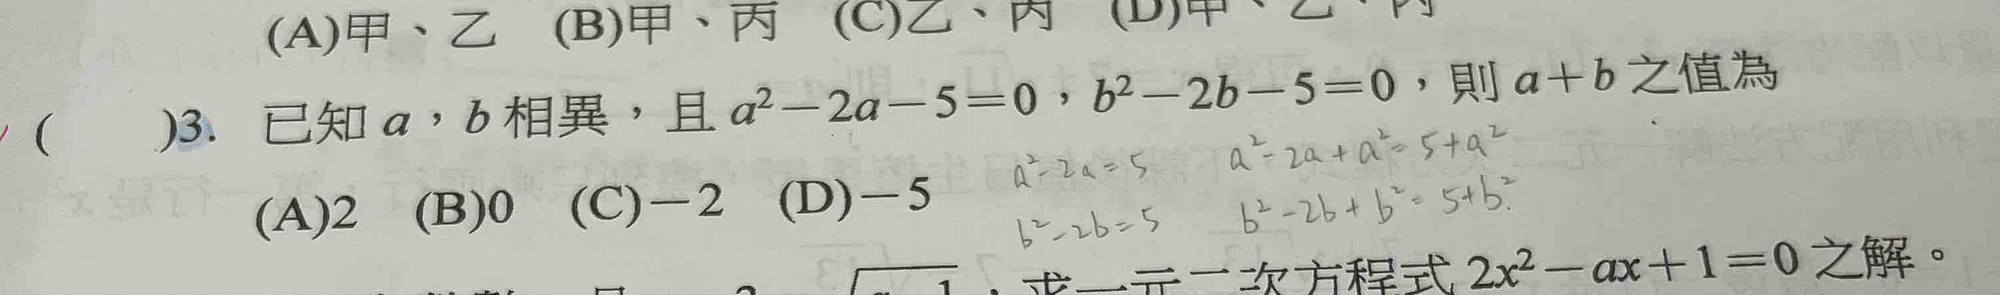 (A)甲、乙 (B)甲、丙 (C)乙、丙 (D)甲、乙、丙
( )3. 已知 a，b 相異，且 a²－2a－5＝0，b²－2b－5＝0，則 a＋b 之值為
a²-2a=5 a²-2a+a²=5+a²
(A)2 (B)0 (C)－2 (D)－5
b²-2b=5 b²-2b+b²=5+b²
求一元二次方程式 2x²－ax＋1＝0 之解。